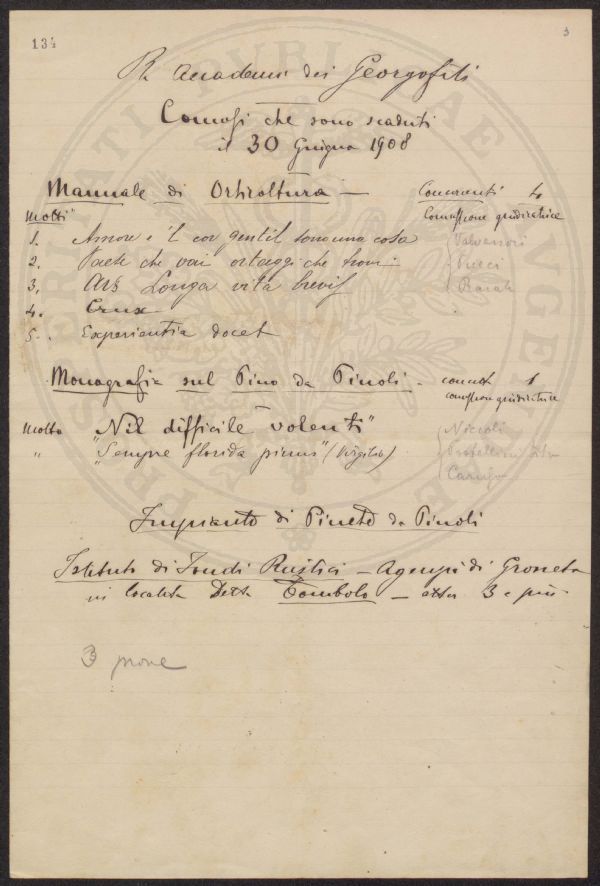 134
3
R. Accademia dei Georgofili
Concorsi che sono scaduti
il 30 Giugno 1908
Manuale di Orticoltura — Concorrenti 4
Motti Commissione giudicatrice
1. Amore e 'l cor gentil sono una cosa Valvassori
2. Paese che vai ortaggi che trovi Pucci
3. Ars Longa vita brevis
4. Crux
5. Experientia docet
Monografia sul Pino da Pinoli — concorr 1
commissione giudicatrice
Motto "Nil difficile volenti" Niccoli
" "Sempre florida pinus" (Virgilio)
Caruso
Impianto di Pineto da Pinoli
Istituto di Fondi Rustici — Agenzia di Grosseto
in località Detta Tombolo — ettari 3 e più
3 prove